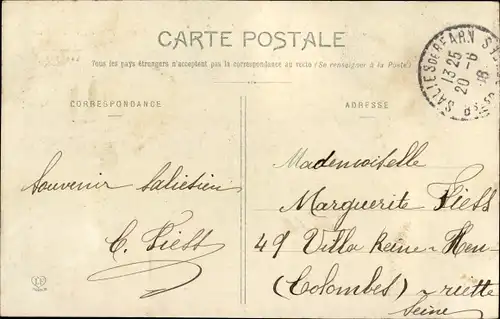 CARTE POSTALE
Tous les pays étrangers n'acceptent pas la correspondance au recto (Se renseigner à la Poste)
CORRESPONDANCE
ADRESSE
SALIES DE BEARN
13 25
20 -6
Souvenir Salisien
C. Fiess
Mademoiselle
Marguerite Fiess
49 Villa Reine-Hen-
(Colombes) - riette
Seine